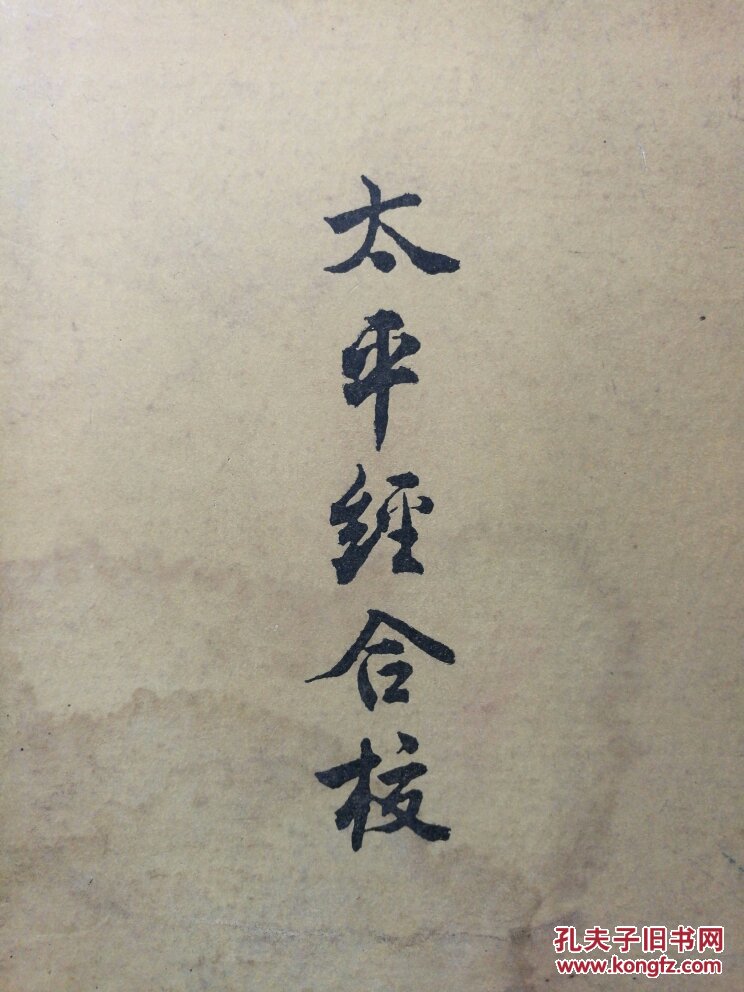 太平經合校
孔夫子旧书网
www.kongfz.com